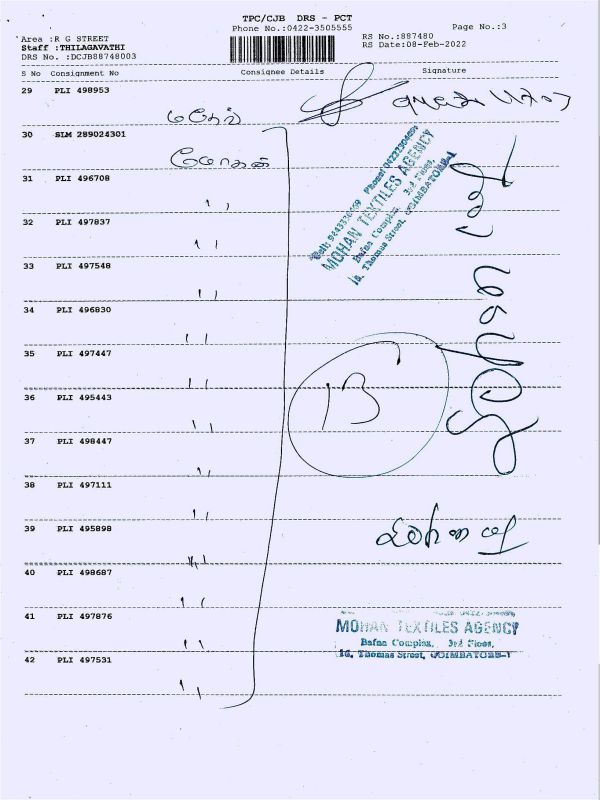 TPC/CJB DRS - PCT
Phone No.:0422-3505555
Page No.:3
Area :R G STREET
Staff :THILAGAVATHI
DRS No. :DCJB88748003
RS No.:887480
RS Date:08-Feb-2022
S No Consignment No Consignee Details Signature
29 PLI 498953
30 SLM 289024301
31 PLI 496708 ''
32 PLI 497837 ''
33 PLI 497548 ''
34 PLI 496830 ''
35 PLI 497447 ''
36 PLI 495443 ''
37 PLI 498447 ''
38 PLI 497111 ''
39 PLI 495898 ''
40 PLI 498687 ''
41 PLI 497876 ''
42 PLI 497531 ''
13
MOHAN TEXTILES AGENCY
Bafna Complex, 3rd Floor,
16, Thomas Street, COIMBATORE-1
MOHAN TEXTILES AGENCY
Bafna Complex, 3rd Floor,
16, Thomas Street, COIMBATORE-1